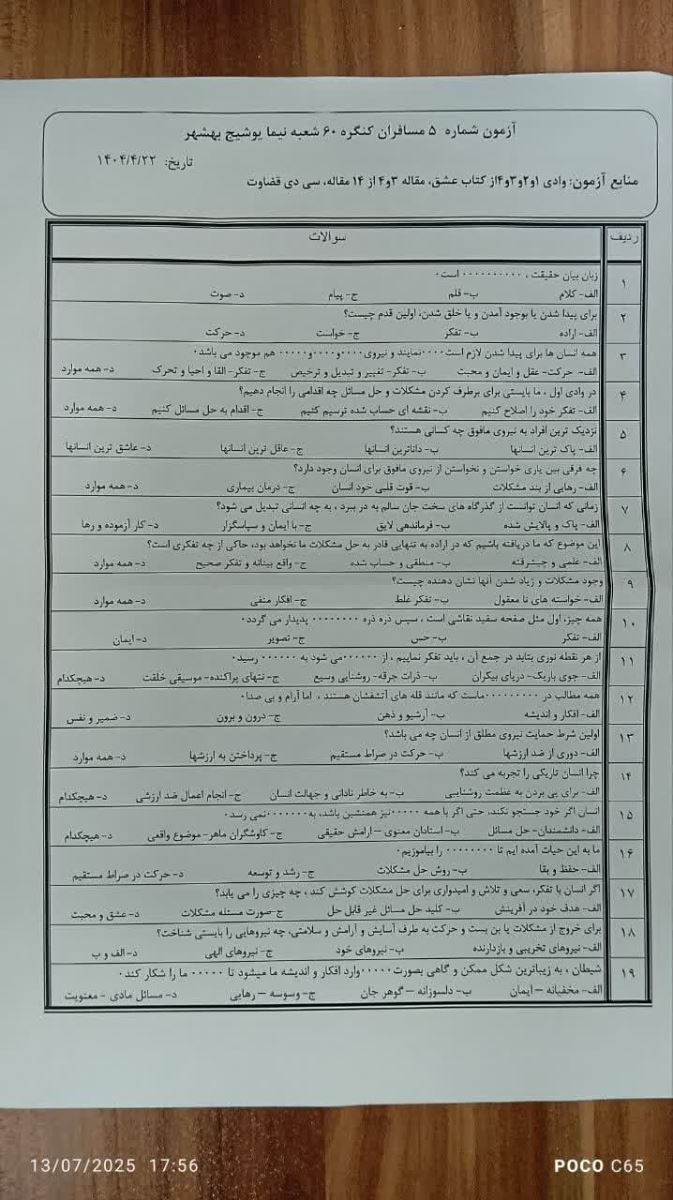 آزمون شماره ۵ مسافران کنگره ۶۰ شعبه نیما یوشیج بهشهر
تاریخ: ۱۴۰۴/۴/۲۲
منابع آزمون: وادی ۱و۲و۳و۴از کتاب عشق، مقاله ۳و۴ از ۱۴ مقاله، سی دی قضاوت
ردیف سوالات
۱ زبان بیان حقیقت ، .......... است.
الف- کلام ب- قلم ج- پیام د- صوت
۲ برای پیدا شدن یا بوجود آمدن و یا خلق شدن، اولین قدم چیست؟
الف- اراده ب- تفکر ج- خواست د- حرکت
۳ همه انسان ها برای پیدا شدن لازم است....نمایند و نیروی....و....و..... هم موجود می باشد.
الف- حرکت- عقل و ایمان و محبت ب- تفکر- تغییر و تبدیل و ترخیص ج- تفکر- القا و احیا و تحرک د- همه موارد
۴ در وادی اول ، ما بایستی برای برطرف کردن مشکلات و حل مسائل چه اقدامی را انجام دهیم؟
الف- تفکر خود را اصلاح کنیم ب- نقشه ای حساب شده ترسیم کنیم ج- اقدام به حل مسائل کنیم د- همه موارد
۵ نزدیک ترین افراد به نیروی مافوق چه کسانی هستند؟
الف- پاک ترین انسانها ب- داناترین انسانها ج- عاقل ترین انسانها د- عاشق ترین انسانها
۶ چه فرقی بین یاری خواستن و نخواستن از نیروی مافوق برای انسان وجود دارد؟
الف- رهایی از بند مشکلات ب- قوت قلبی خود انسان ج- درمان بیماری د- همه موارد
۷ زمانی که انسان توانست از گذرگاه های سخت جان سالم به در ببرد ، به چه انسانی تبدیل می شود؟
الف- پاک و پالایش شده ب- فرماندهی لایق ج- با ایمان و سپاسگزار د- کار آزموده و رها
۸ این موضوع که ما دریافته باشیم که در اراده به تنهایی قادر به حل مشکلات ما نخواهد بود، حاکی از چه تفکری است؟
الف- علمی و پیشرفته ب- منطقی و حساب شده ج- واقع بینانه و تفکر صحیح د- همه موارد
۹ وجود مشکلات و زیاد شدن آنها نشان دهنده چیست؟
الف- خواسته های نا معقول ب- تفکر غلط ج- افکار منفی د- همه موارد
۱۰ همه چیز، اول مثل صفحه سفید نقاشی است ، سپس ذره ذره ........ پدیدار می گردد.
الف- تفکر ب- حس ج- تصویر د- ایمان
۱۱ از هر نقطه نوری بتابد در جمع آن ، باید تفکر نماییم ، از ......می شود به ...... رسید.
الف- جوی باریک- دریای بیکران ب- ذرات جرقه- روشنایی وسیع ج- نتهای پراکنده- موسیقی خلقت د- هیچکدام
۱۲ همه مطالب در .........ماست که مانند قله های آتشفشان هستند ، اما آرام و بی صدا.
الف- افکار و اندیشه ب- آرشیو و ذهن ج- درون و برون د- ضمیر و نفس
۱۳ اولین شرط حمایت نیروی مطلق از انسان چه می باشد؟
الف- دوری از ضد ارزشها ب- حرکت در صراط مستقیم ج- پرداختن به ارزشها د- همه موارد
۱۴ چرا انسان تاریکی را تجربه می کند؟
الف- برای پی بردن به عظمت روشنایی ب- به خاطر نادانی و جهالت انسان ج- انجام اعمال ضد ارزشی د- هیچکدام
۱۵ انسان اگر خود جستجو نکند، حتی اگر با همه .....نیز همنشین باشد، به........نمی رسد.
الف- دانشمندان- حل مسائل ب- استادان معنوی – ارامش حقیقی ج- کاوشگران ماهر- موضوع واقعی د- هیچکدام
۱۶ ما به این حیات آمده ایم تا ........ را بیاموزیم.
الف- حفظ و بقا ب- روش حل مشکلات ج- رشد و توسعه د- حرکت در صراط مستقیم
۱۷ اگر انسان با تفکر، سعی و تلاش و امیدواری برای حل مشکلات کوشش کند ، چه چیزی را می یابد؟
الف- هدف خود در آفرینش ب- کلید حل مسائل غیر قابل حل ج- صورت مسئله مشکلات د- عشق و محبت
۱۸ برای خروج از مشکلات یا بن بست و حرکت به طرف آسایش و آرامش و سلامتی، چه نیروهایی را بایستی شناخت؟
الف- نیروهای تخریبی و بازدارنده ب- نیروهای خود ج- نیروهای الهی د- الف و ب
۱۹ شیطان ، به زیباترین شکل ممکن و گاهی بصورت.....وارد افکار و اندیشه ما میشود تا ..... ما را شکار کند.
الف- مخفیانه – ایمان ب- دلسوزانه – گوهر جان ج- وسوسه – رهایی د- مسائل مادی - معنویت
13/07/2025 17:56
POCO C65